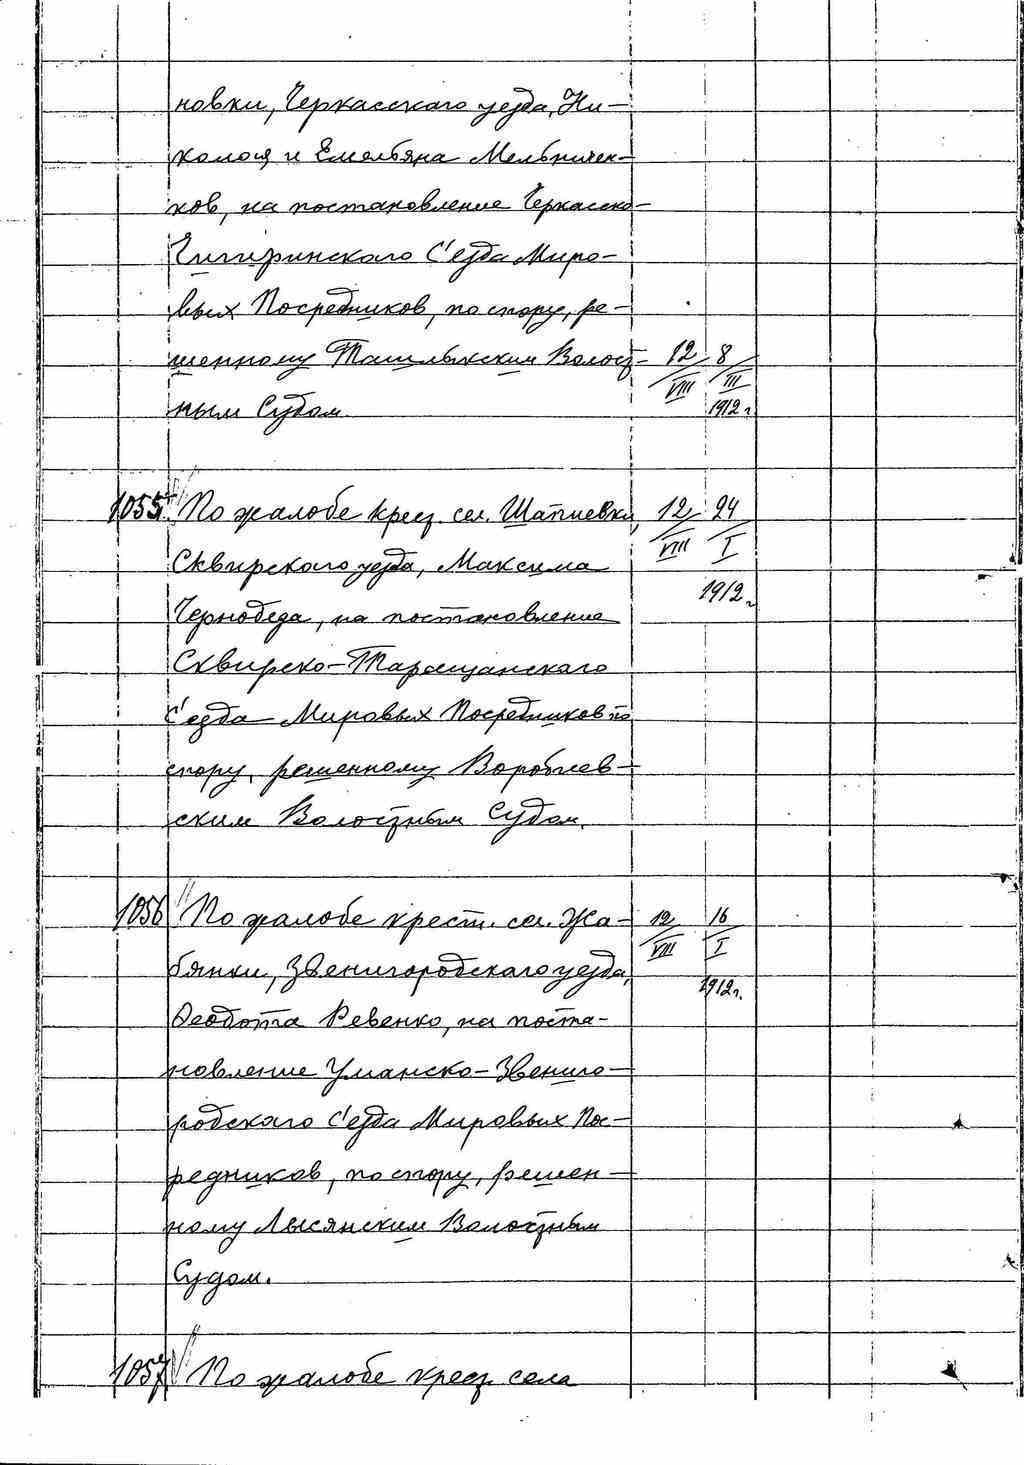 новки, Черкасскаго уезда, Ни-
колая и Емельяна Мельничен-
ков, на постановление Черкасско-
Чигиринскаго С'езда Миро-
вых Посредников, по спору, ре-
шенному Ташлыкским Волост- 12/VIII 8/III
ным Судом. 1912 г.
1055 По жалобе крест. сел. Шапиевки, 12/VIII 24/I
Сквирскаго уезда, Максима 1912 г.
Чернобеда, на постановление
Сквирско-Таращанскаго
С'езда Мировых Посредников по
спору, решенному Вороблев-
ским Волостным Судом.
1056 По жалобе крест. сел. Жа- 12/VIII 16/I
бянки, Звенигородскаго уезда, 1912 г.
Феодота Ревенко, на поста-
новление Уманско-Звениго-
родскаго С'езда Мировых Пос-
редников, по спору, решен-
ному Лысянским Волостным
Судом.
1057 По жалобе крест. села